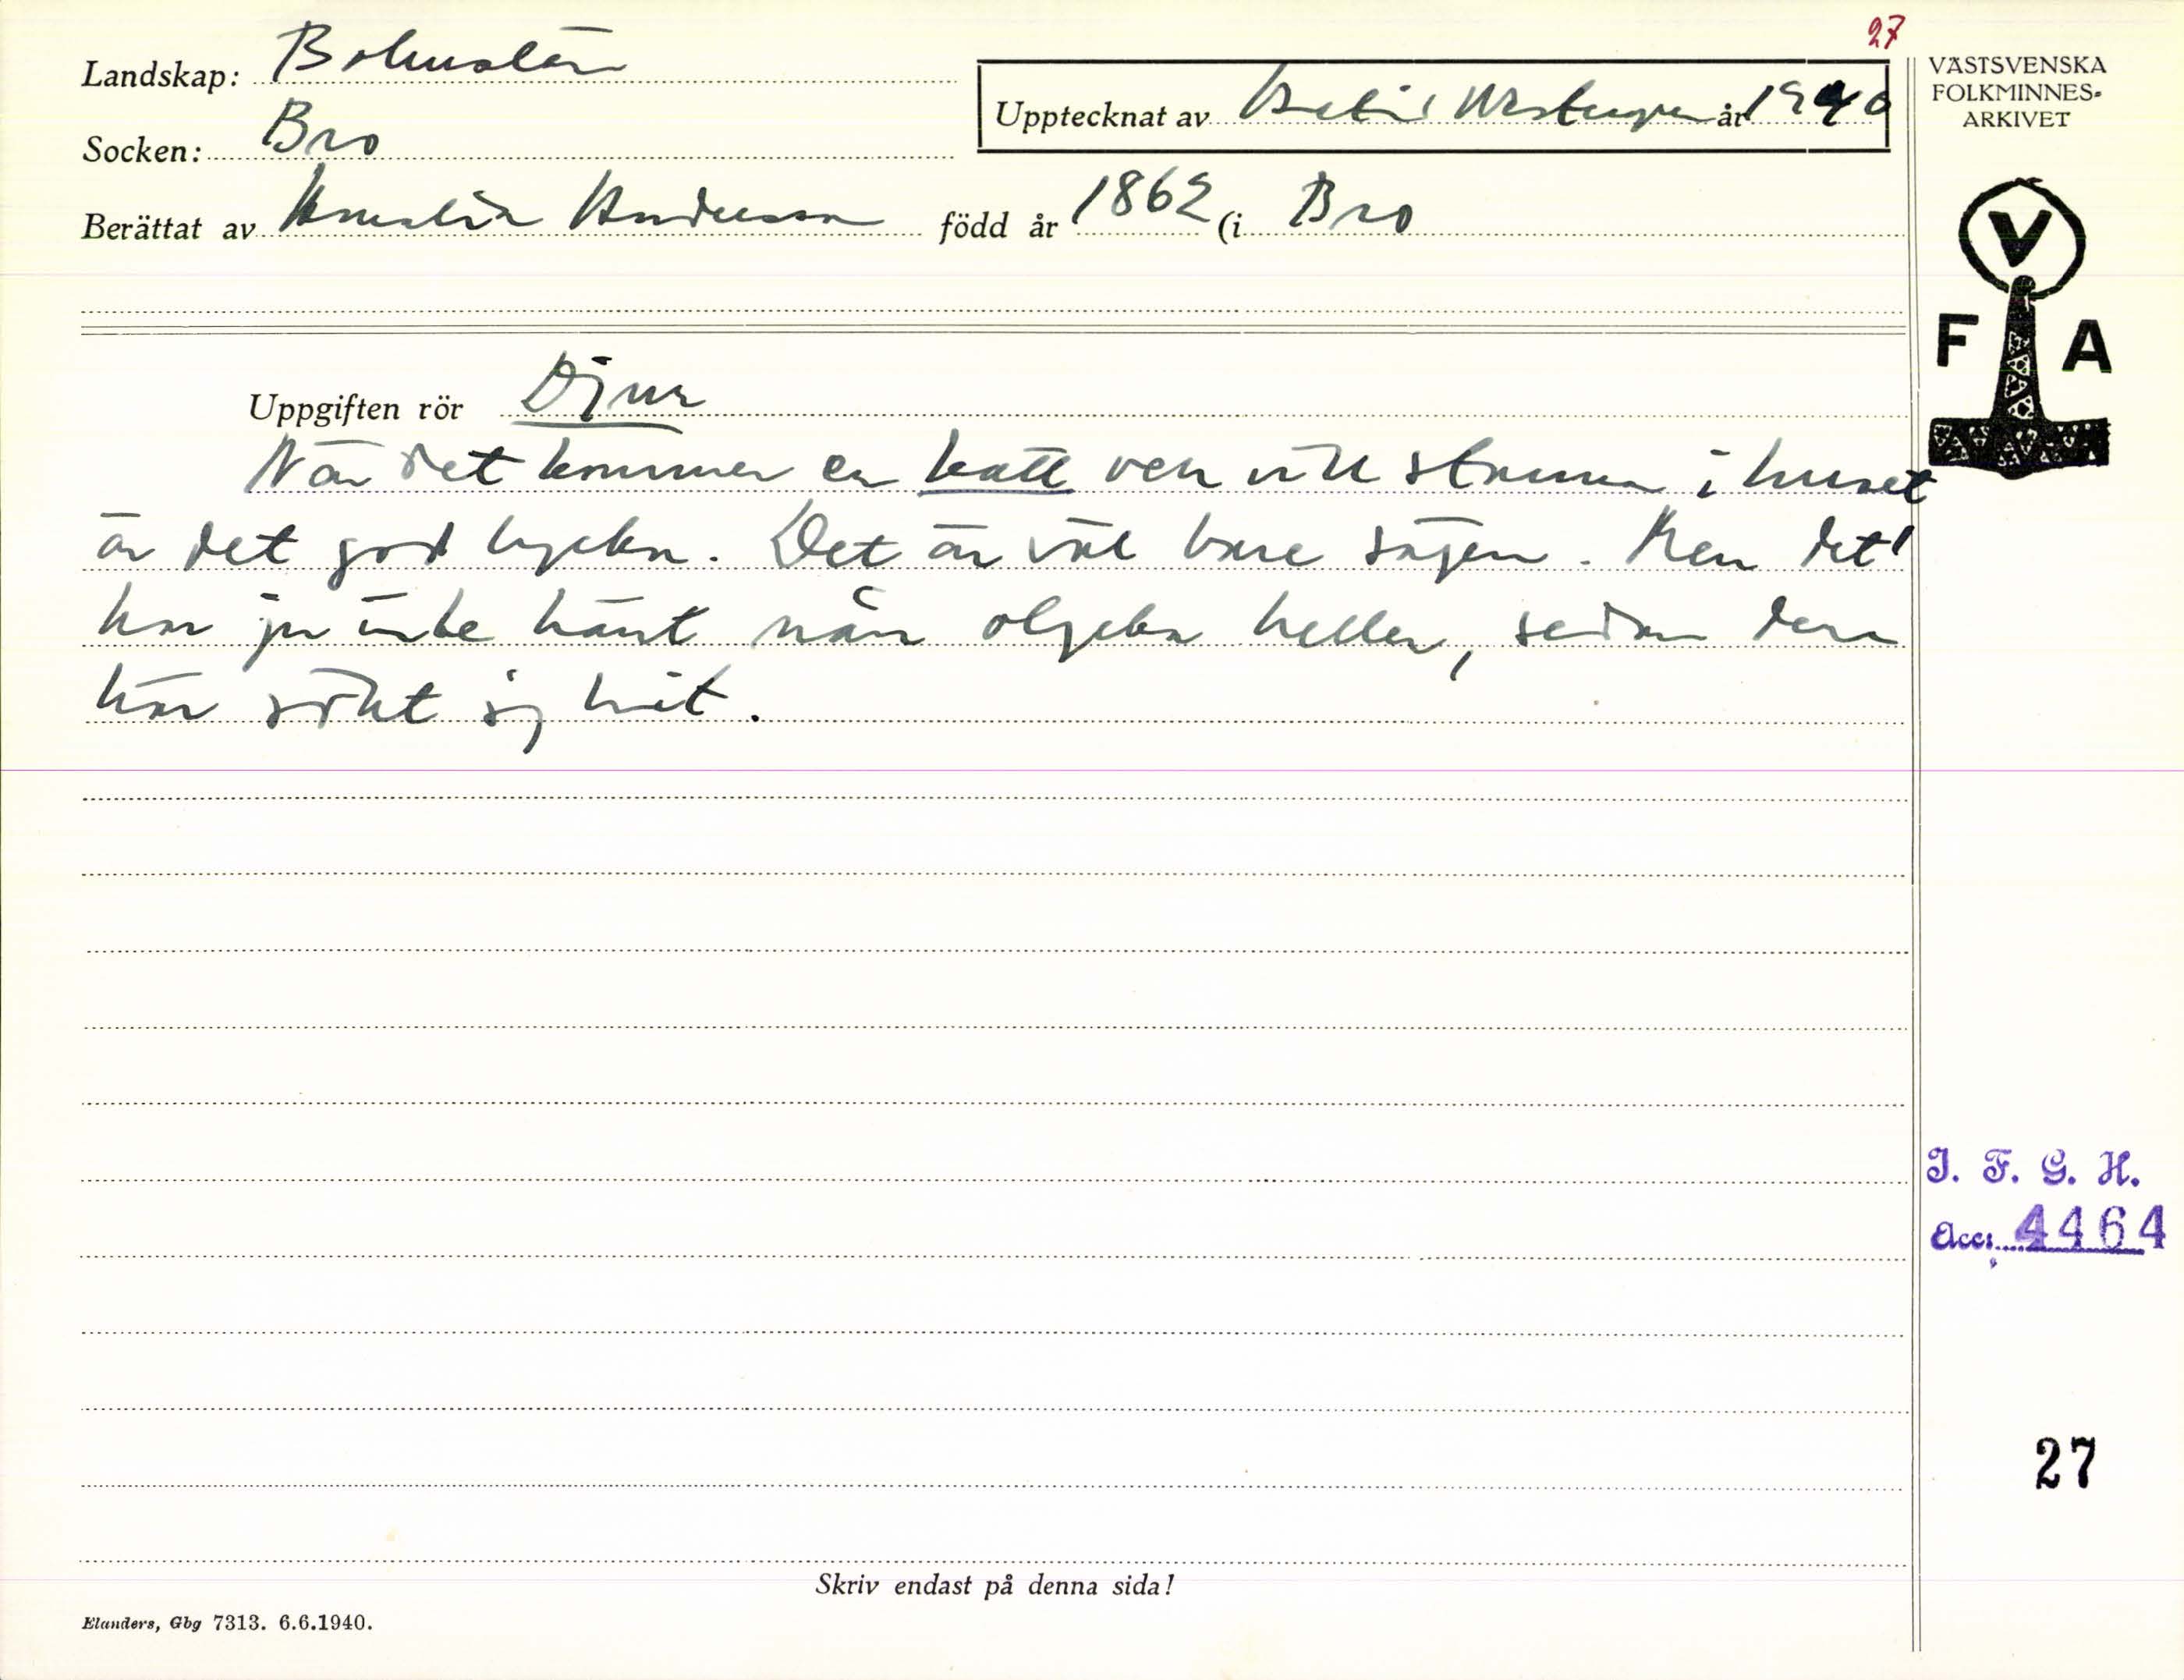 27
Landskap: Bohuslän
Socken: Bro
Upptecknat av Westergren år 1940
Berättat av Amalia Andersson född år 1862 (i Bro
VÄSTSVENSKA
FOLKMINNES-
ARKIVET
V
F A
Uppgiften rör Djur
När det kommer en katt och vill stanna i huset
är det god lycka. Det är väl bare sägen. Men det
har ju inte hänt nån olycka heller, sedan den
här sökt sig hit.
I. F. G. H.
Acc. 4464
27
Skriv endast på denna sida!
Elanders, Gbg 7313. 6.6.1940.